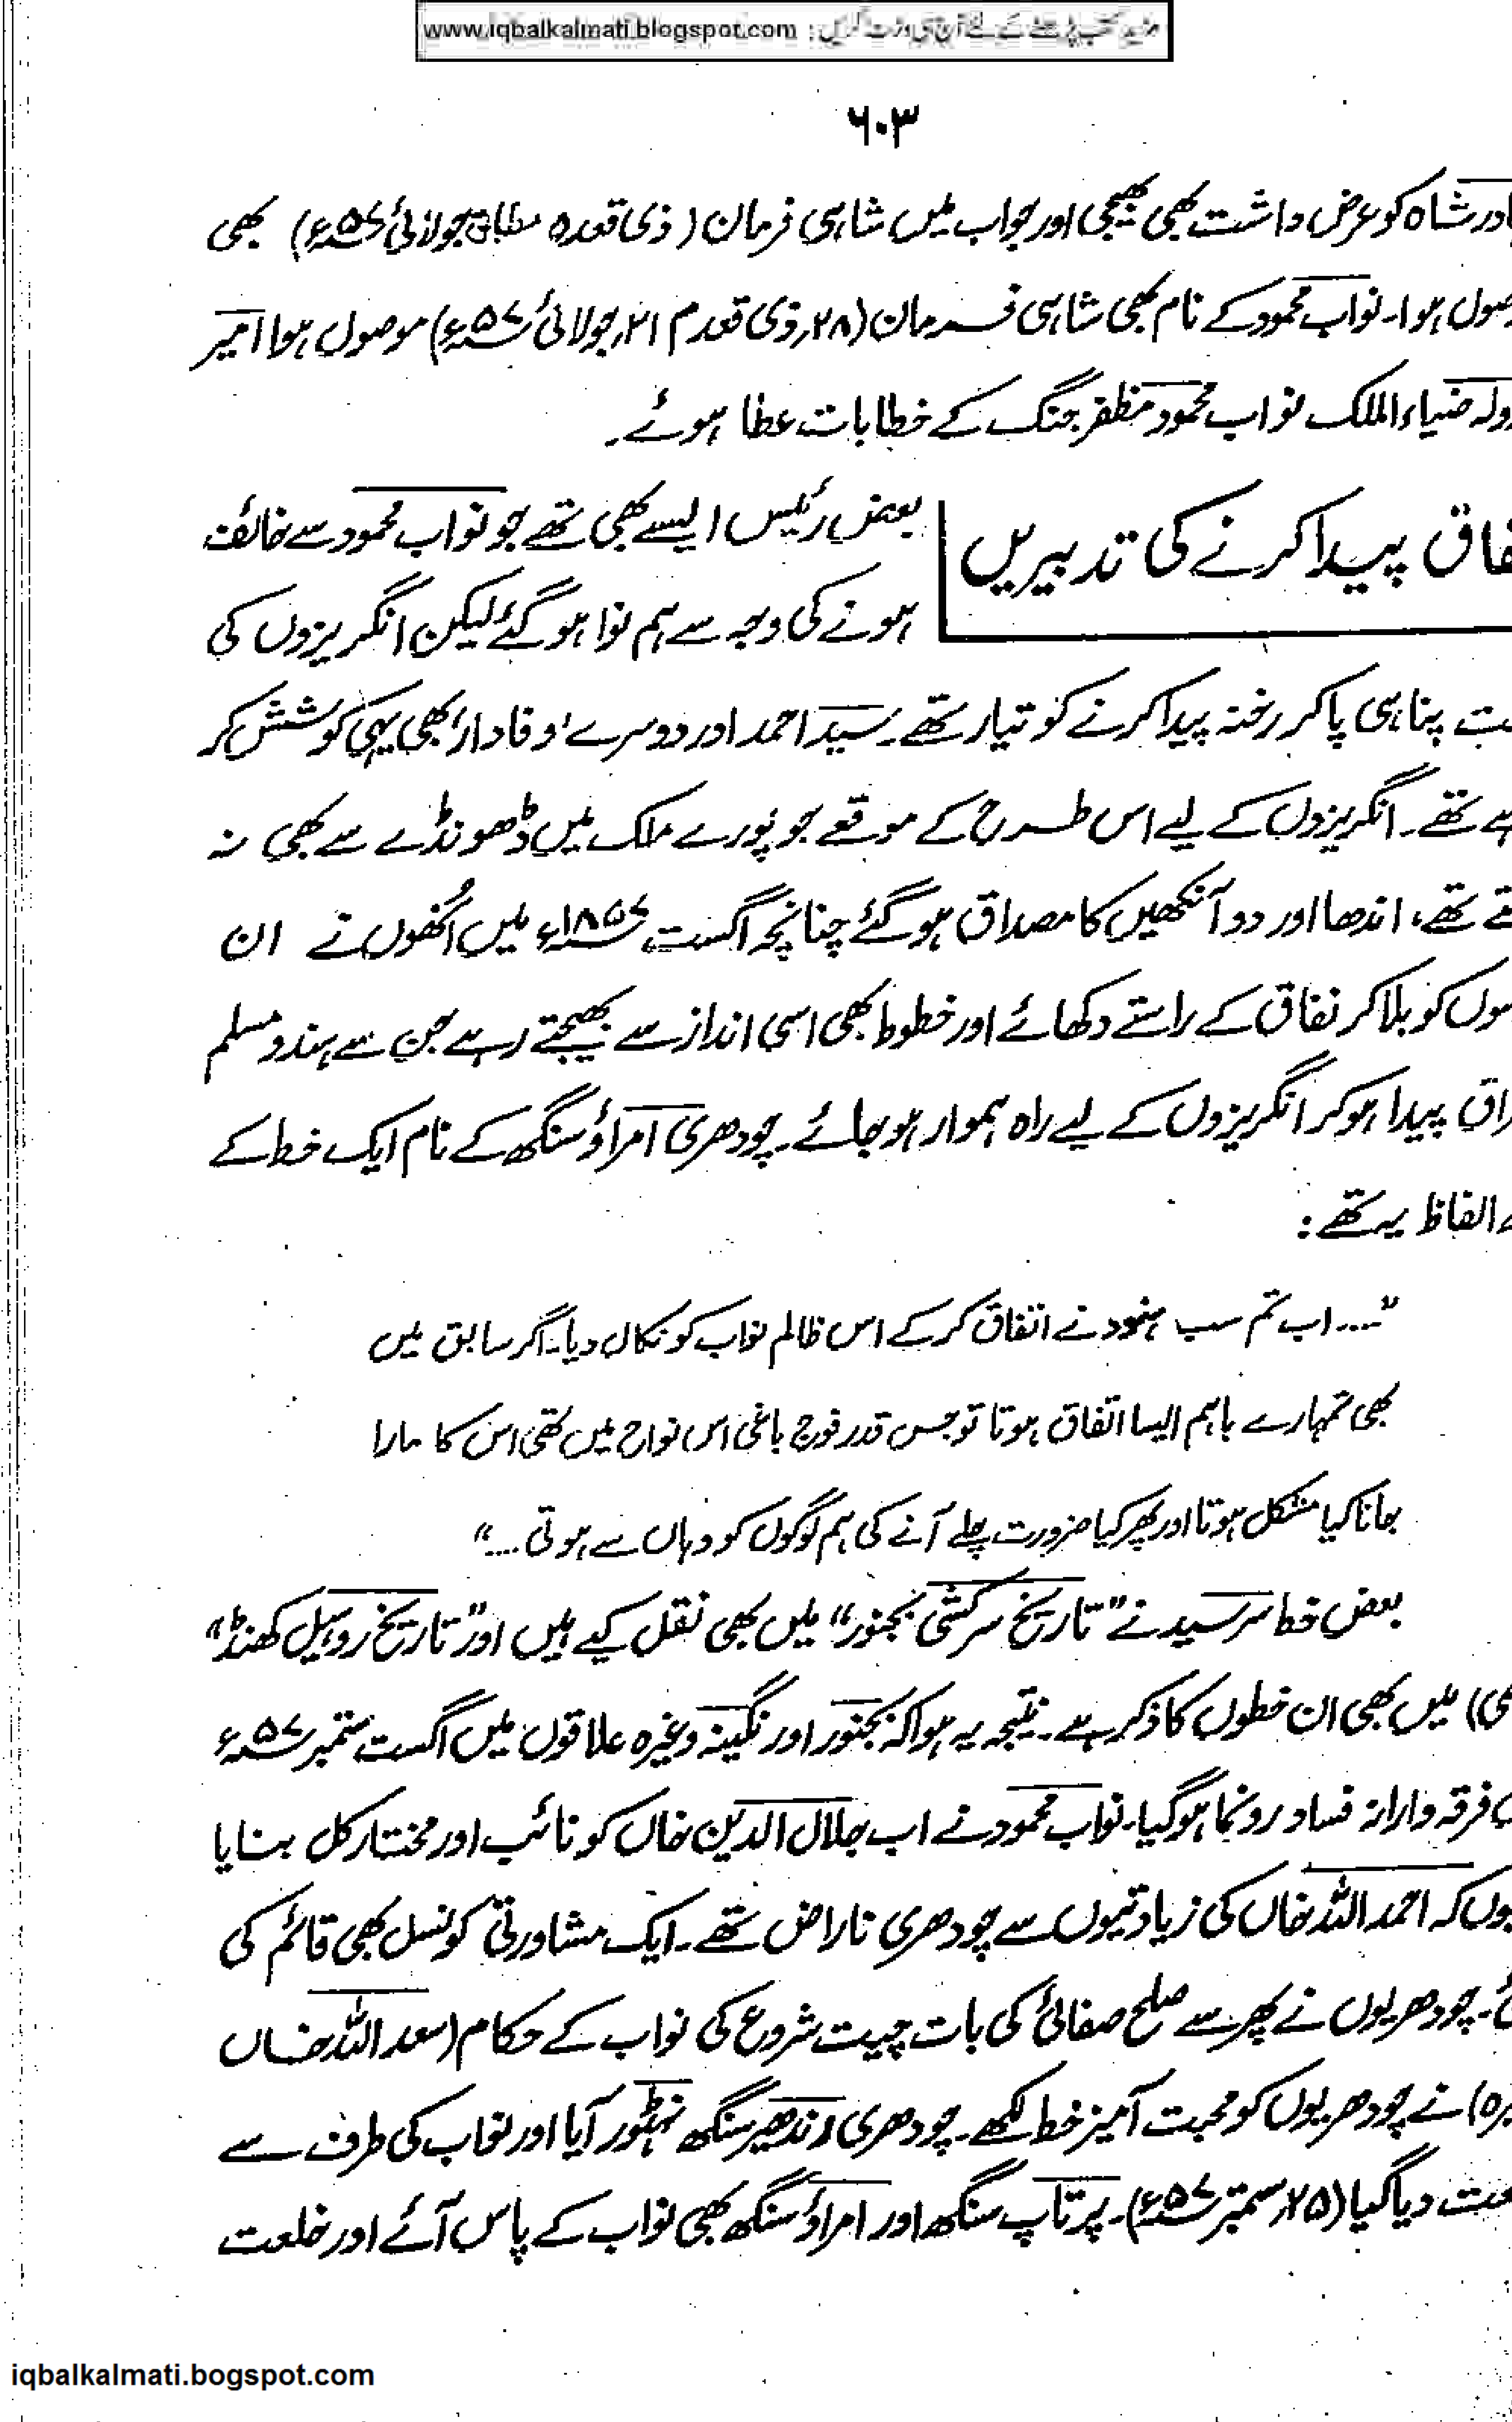 مزید کتب پڑھنے کے لئے آج ہی وزٹ کریں : www.iqbalkalmati.blogspot.com
۶۰۳
کو عرض داشت بھی بھیجی اور جواب میں شاہی فرمان (ذی قعدہ مطابق جولائی ۵۷ء) بھی
ہوا۔ نواب محمود کے نام بھی شاہی فرمان (۲۸؍ذی قعدہ م ۲۱؍جولائی ۵۷ء) موصول ہوا امیر
ضیاء الملک نواب محمود مظفر جنگ کے خطابات عطا ہوئے۔
پیدا کرنے کی تدبیریں
بعض رئیس ایسے بھی تھے جو نواب محمود سے خائف
ہونے کی وجہ سے ہم نوا ہو گئے لیکن انگریزوں کی
پناہی پا کر رخنہ پیدا کرنے کو تیار تھے۔ سید احمد اور دوسرے 'وفادار' بھی یہی کوشش کر
تھے۔ انگریزوں کے لیے اس طرح کے موقعے جو پورے ملک میں ڈھونڈے سے بھی نہ
تھے، اندھا اور دو آنکھیں کا مصداق ہو گئے چنانچہ اگست ۱۸۵۷ء میں اُنھوں نے ان
کو بلا کر نفاق کے راستے دکھائے اور خطوط بھی اسی انداز سے بھیجتے رہے جن سے ہندو مسلم
پیدا ہو کر انگریزوں کے لیے راہ ہموار ہو جائے۔ چودھری امراؤ سنگھ کے نام ایک خط کے
الفاظ یہ تھے :
"....اب تم سب ہنود نے اتفاق کر کے اس ظالم نواب کو نکال دیا۔ اگر سابق میں
بھی تمہارے باہم ایسا اتفاق ہوتا تو جس قدر فوج باغی اس نواح میں تھی اس کا مارا
جانا کیا مشکل ہوتا اور پھر کیا ضرورت چلے آنے کی ہم لوگوں کو وہاں سے ہوتی ...."
بعض خط سرسید نے "تاریخ سرکشی بجنور" میں بھی نقل کیے ہیں اور "تاریخ روہیل کھنڈ"
میں بھی ان خطوں کا ذکر ہے۔ نتیجہ یہ ہوا کہ بجنور اور نگینہ وغیرہ علاقوں میں اگست ستمبر ۵۷ء
فرقہ وارانہ فساد رونما ہو گیا۔ نواب محمود نے اب جلال الدین خاں کو نائب اور مختار کل بنایا
کہ احمد اللہ خاں کی زیادتیوں سے چودھری ناراض تھے۔ ایک مشاورتی کونسل بھی قائم کی
۔ چودھریوں نے پھر سے صلح صفائی کی بات چیت شروع کی نواب کے حکام (سعد اللہ خاں
) نے چودھریوں کو محبت آمیز خط لکھے۔ چودھری رندھیر سنگھ نہٹور آیا اور نواب کی طرف سے
دیا گیا (۲۵؍ستمبر ۵۷ء)۔ پرتاپ سنگھ اور امراؤ سنگھ بھی نواب کے پاس آئے اور خلعت
iqbalkalmati.bogspot.com